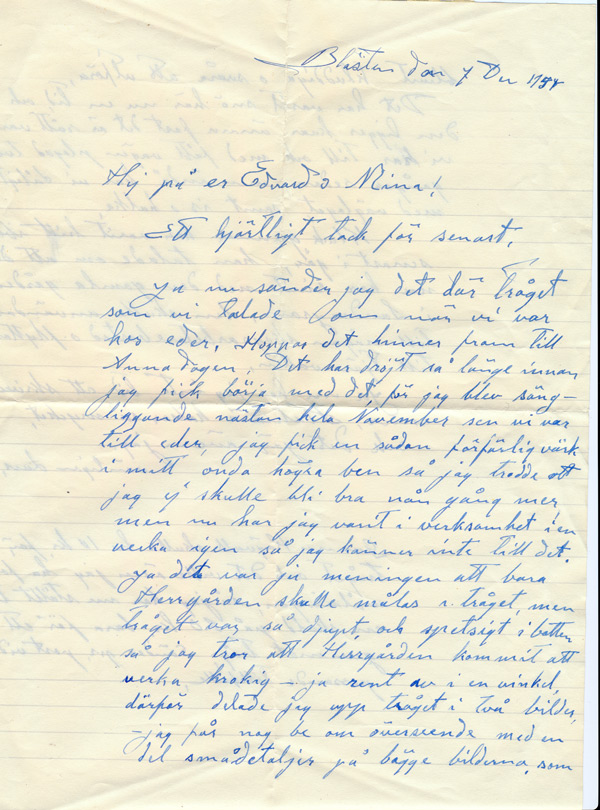 Blåstan den 7 Dec 1954
Hej på er Edvard o Mina!
Ett hjärtligt tack för senast.
Ja nu sänder jag det där tråget
som vi talade om när vi var
hos eder, Hoppas det hinner fram till
Annadagen. Det har dröjt så länge innan
jag fick börja med det för jag blev säng-
liggande nästan hela November sen vi var
till eder, jag fick en sådan förfärlig värk
i mitt onda högra ben så jag trodde att
jag ej skulle bli bra nån gång mer
men nu har jag varit i verksamhet i en
vecka igen så jag känner inte till det.
Ja det var ju meningen att bara
Herrgården skulle målas i tråget, men
tråget var så djupt och spetsigt i botten
så jag tror att Herrgården kommit att
verka krokig – ja rent av i en vinkel,
därför delade jag upp tråget i två bilder,
– jag får nog be om överseende med en
del smådetaljer på bägge bilderna, som